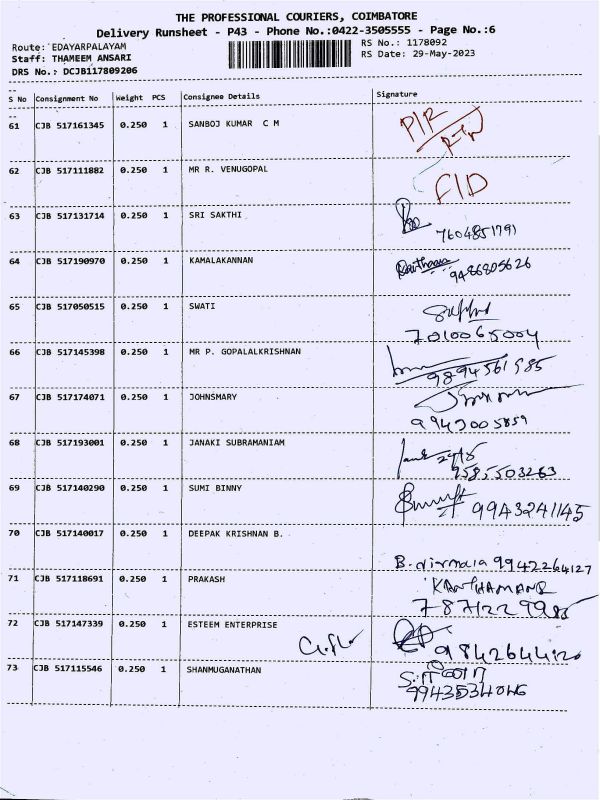 THE PROFESSIONAL COURIERS, COIMBATORE
Delivery Runsheet - P43 - Phone No.:0422-3505555 - Page No.:6
Route: EDAYARPALAYAM
Staff: THAMEEM ANSARI
DRS No.: DCJB117809206
RS No.: 1178092
RS Date: 29-May-2023
S No Consignment No Weight PCS Consignee Details Signature
61 CJB 517161345 0.250 1 SANBOJ KUMAR C M P/R
RTN
62 CJB 517111882 0.250 1 MR R. VENUGOPAL F/D
63 CJB 517131714 0.250 1 SRI SAKTHI 7604851791
64 CJB 517190970 0.250 1 KAMALAKANNAN 9486805626
65 CJB 517050515 0.250 1 SWATI
7010065004
66 CJB 517145398 0.250 1 MR P. GOPALALKRISHNAN
9894561985
67 CJB 517174071 0.250 1 JOHNSMARY
9943005859
68 CJB 517193001 0.250 1 JANAKI SUBRAMANIAM
9585503263
69 CJB 517140290 0.250 1 SUMI BINNY 9943241145
70 CJB 517140017 0.250 1 DEEPAK KRISHNAN B.
B. nirmala 9942264127
71 CJB 517118691 0.250 1 PRAKASH KANTHAMANE
7871229985
72 CJB 517147339 0.250 1 ESTEEM ENTERPRISE
9842644120
73 CJB 517115546 0.250 1 SHANMUGANATHAN
9943534046